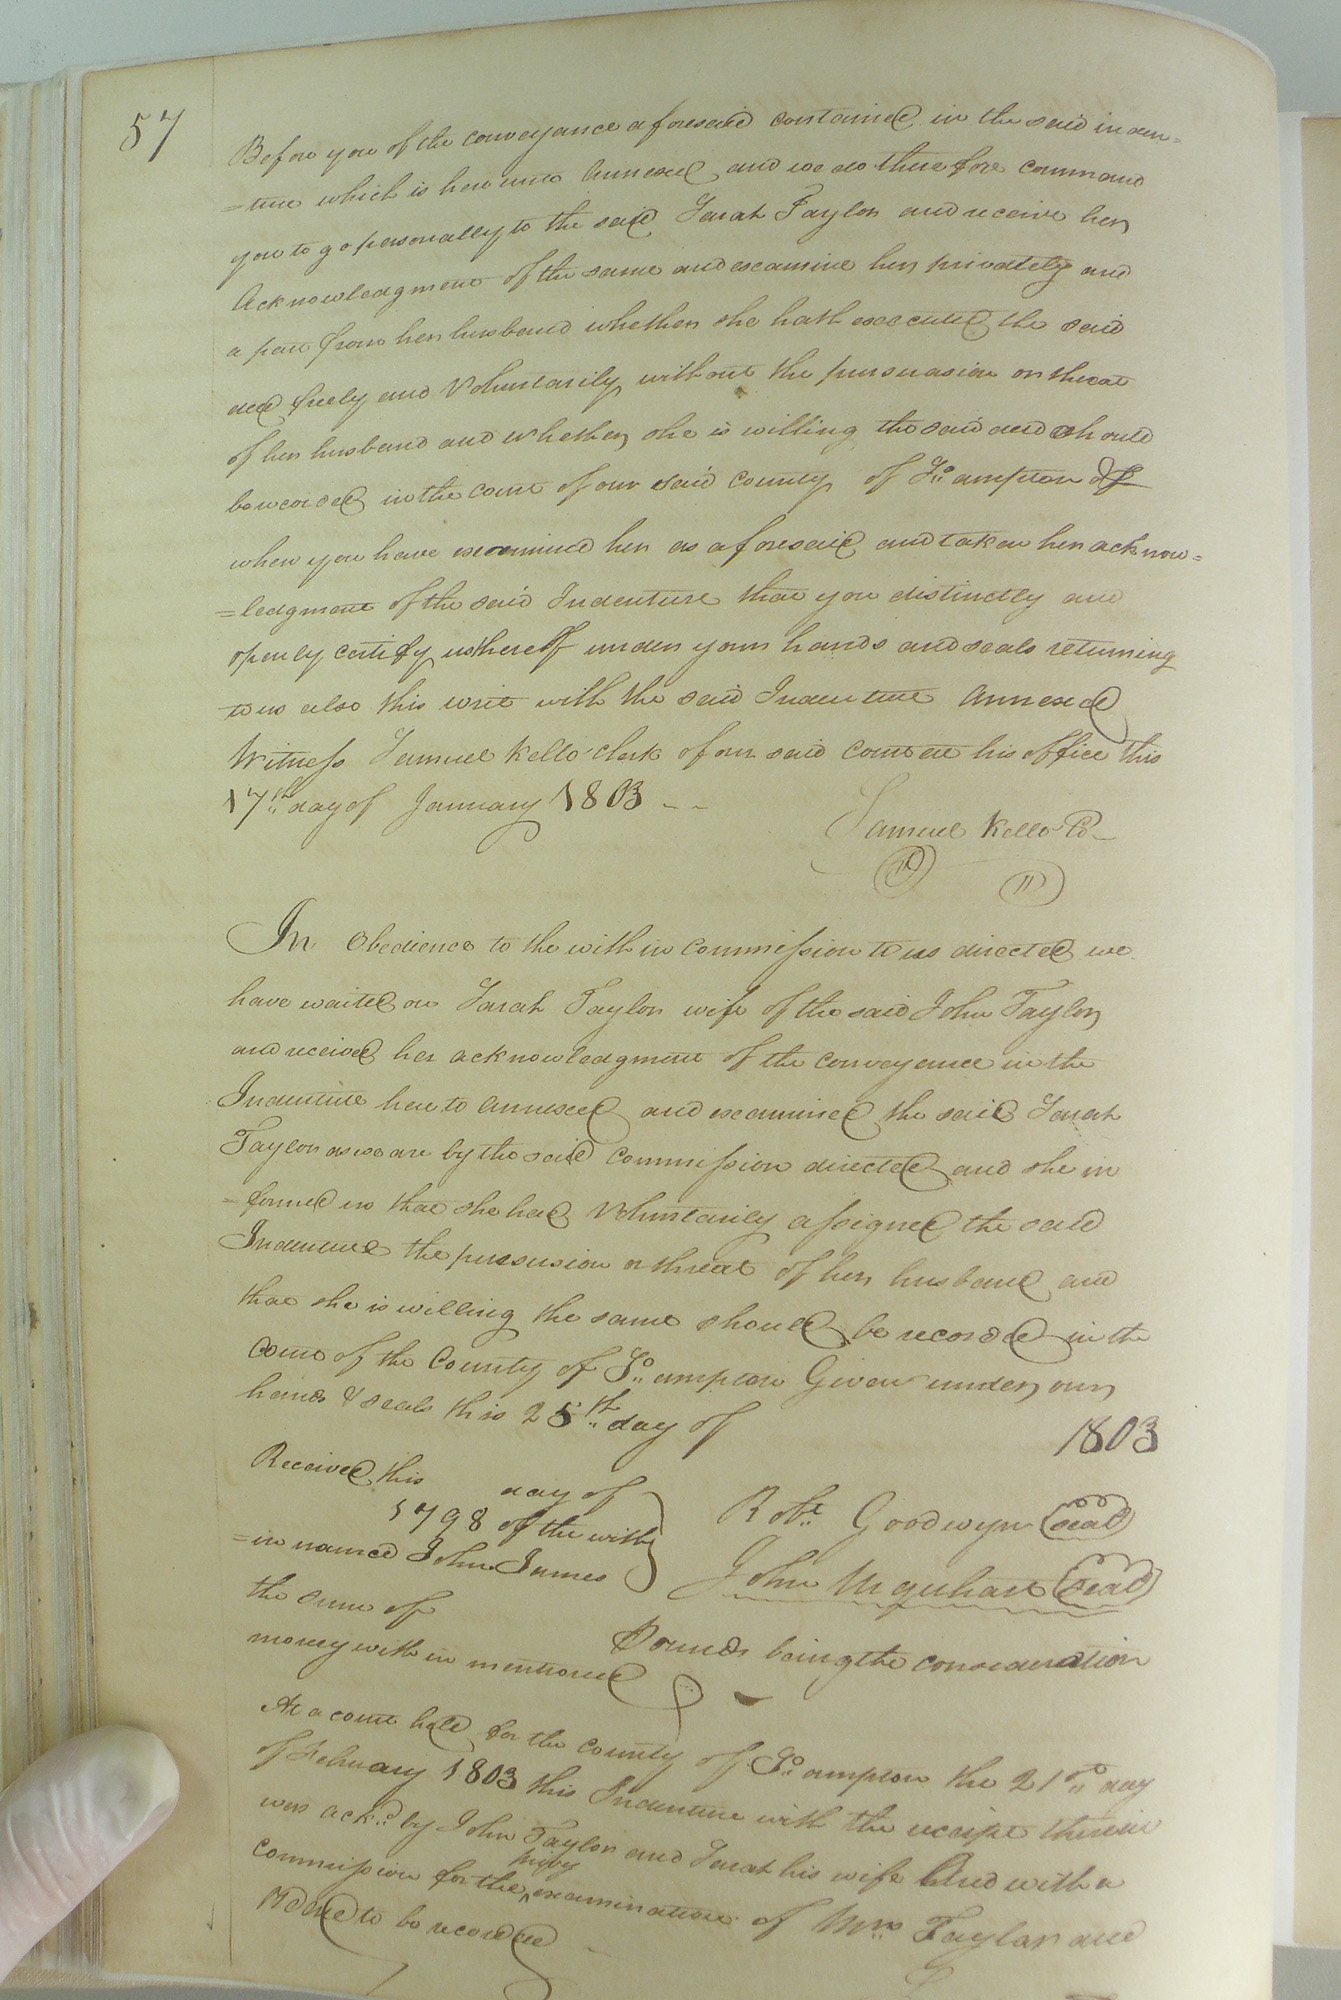 57
Before you of the conveyance aforesaid contained in the said inden=
=ture which is hereunto Annexed and we do therefore command
you to go personally to the said Sarah Taylor and receive her
Acknowledgment of the same and examine her privately and
apart from her husband whether she hath executed the said
deed freely and Voluntarily without the pursuasion or threat
of her husband and whether she is willing the said deed should
be recorded in the court of our said County of So.ampton &
when you have examined her as aforesaid and taken her acknow=
=ledgment of the said Indenture that you distinctly and
openly certify us thereof under your hands and seals returning
to us also this writ with the said Indenture Annexed
Witness Samuel Kello clerk of our said court at his office this
17th day of January 1803 - -
Samuel Kello
In Obedience to the within commission to us directed we
have waited on Sarah Taylor wife of the said John Taylor
and received her acknowledgment of the conveyance in the
Indenture hereto annexed and examined the said Sarah
Taylor as we are by the said commission directed and she in
=formed us that she had Voluntarily assigned the said
Indenture the pursusion or threat of her husband and
that she is willing the same should be recorded in the
Court of the County of So.ampton Given under our
hands & seals this 25th day of 1803
Received this day of
1798 of the with
=in named John James
the sum of
Pounds being the consideration
money within mentioned
Robt. Goodwyn (seal)
John Urquhart (seal)
At a court held for the county of So.ampton the 21st day
of February 1803 this Indenture with the receipt therein
was ackd. by John Taylor and Sarah his wife And with a
commission for the privy examination of Mrs Taylor and
Ordered to be recorded